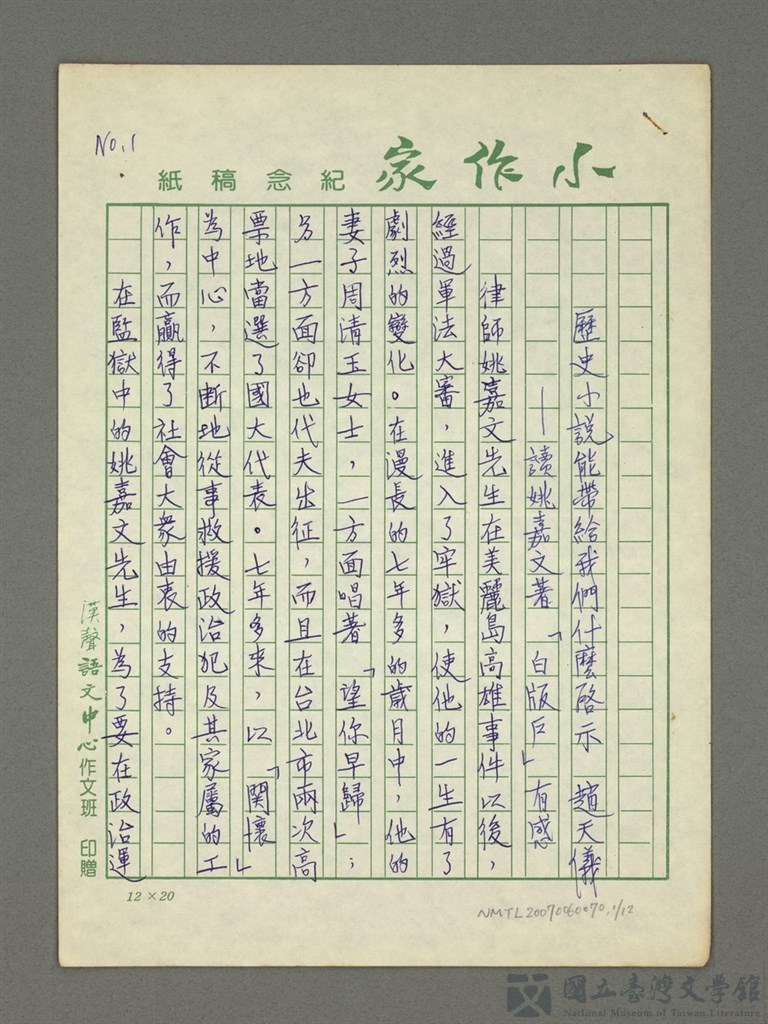 No.1
小作家
紀念稿紙
歷史小說能帶給我們什麼啓示 趙天儀
——讀姚嘉文著「白版戶」有感
律師姚嘉文先生在美麗島高雄事件以後，
經過軍法大審，進入了牢獄，使他的一生有了
劇烈的變化。在漫長的七年多的歲月中，他的
妻子周清玉女士，一方面唱著「望你早歸」；
另一方面卻也代夫出征，而且在台北市兩次高
票地當選了國大代表。七年多來，以「関懷」
為中心，不斷地從事救援政治犯及其家屬的工
作，而贏得了社會大衆由衷的支持。
在監獄中的姚嘉文先生，為了要在政治運
漢聲語文中心作文班 印贈
12×20
NMTL20070060070,1/12
國立臺灣文學館
National Museum of Taiwan Literature